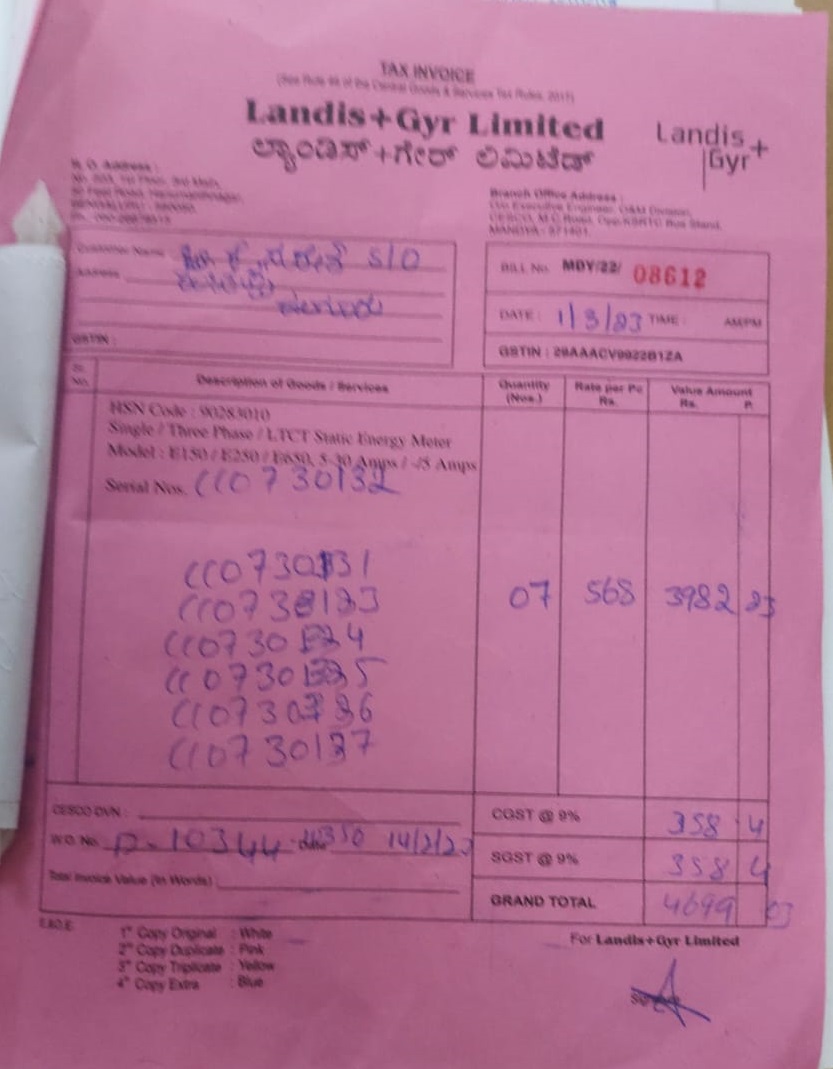 TAX INVOICE
(See Rule 46 of the Central Goods & Services Tax Rules, 2017)
Landis+Gyr Limited
Landis+
Gyr
ಲ್ಯಾಂಡಿಸ್+ಗೇರ್ ಲಿಮಿಟೆಡ್
R. O. Address :
Branch Office Address :
MANDYA - 571401.
Customer Name
S/O
Address
GSTIN :
BILL No. MDY/22/ 08612
DATE : 1/3/23 TIME : AM/PM
GSTIN : 29AAACV9922B1ZA
Sl. No. Description of Goods / Services Quantity (Nos.) Rate per Pc Rs. Value Amount Rs. P.
HSN Code : 90283010
Single / Three Phase / LTCT Static Energy Meter
Model : E150 / E250 / E650, 5-30 Amps / -/5 Amps
Serial Nos. CC0730132
CC0730131
CC0730133
CC0730134
CC0730135
CC0730136
CC0730137
07 568 3982 23
CESCO DVN :
CGST @ 9% 358 4
W.O. No. 10344 14/2/23
SGST @ 9% 358 4
Total Invoice Value (In Words)
GRAND TOTAL 4699 03
E.&O.E.
1st Copy Original : White
2nd Copy Duplicate : Pink
3rd Copy Triplicate : Yellow
4th Copy Extra : Blue
For Landis+Gyr Limited